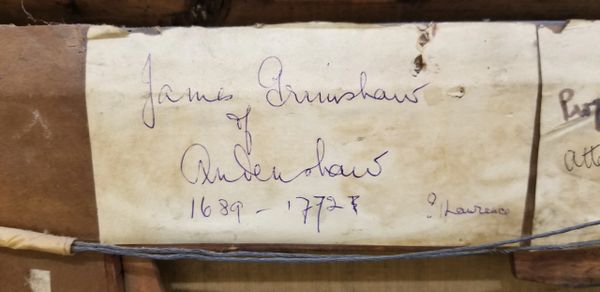 James Grimshaw
of
Audenshaw
1689 - 1772?
? Lawrence
Prop
atte